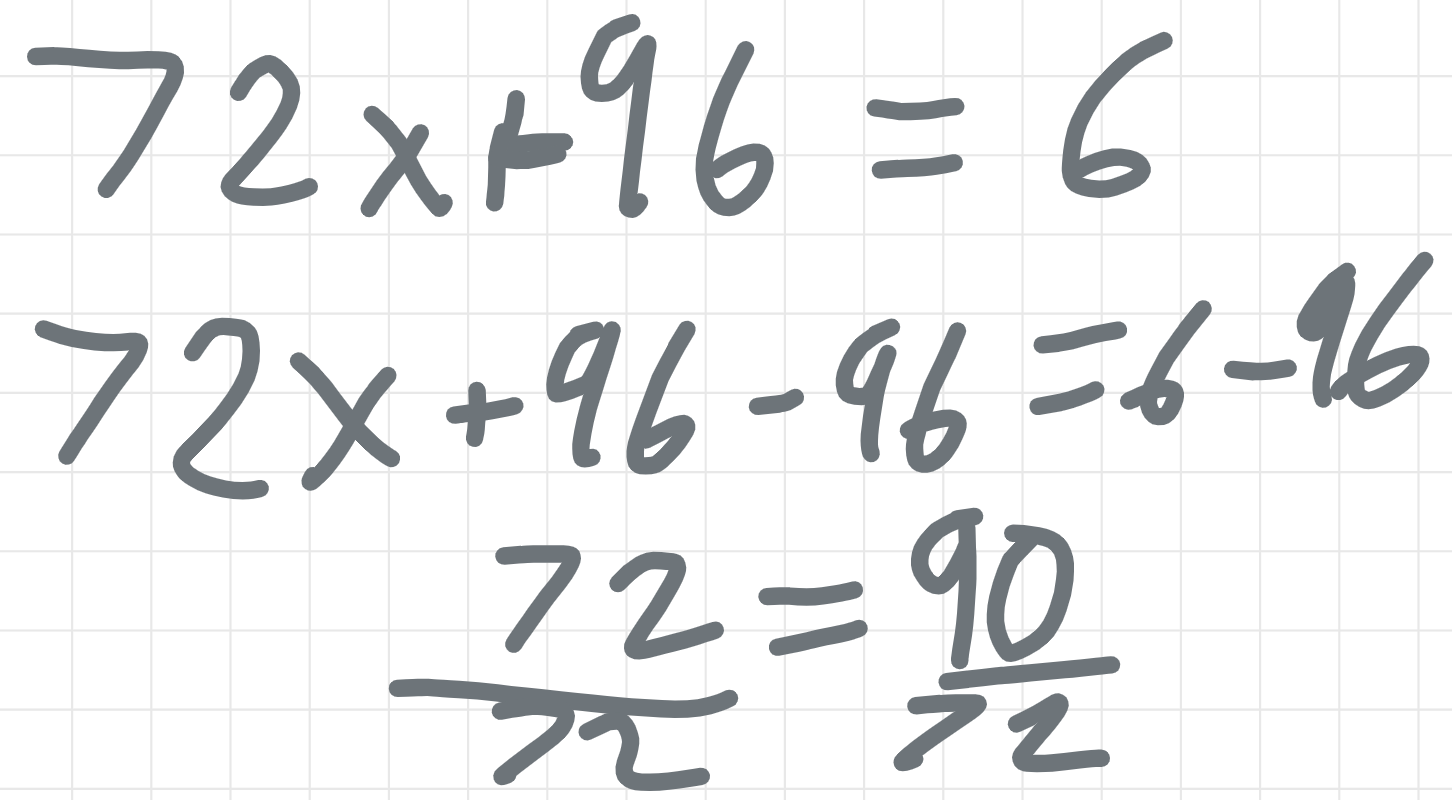 72x+96 = 6
72x+96-96=6-96
72 = 90
72 72